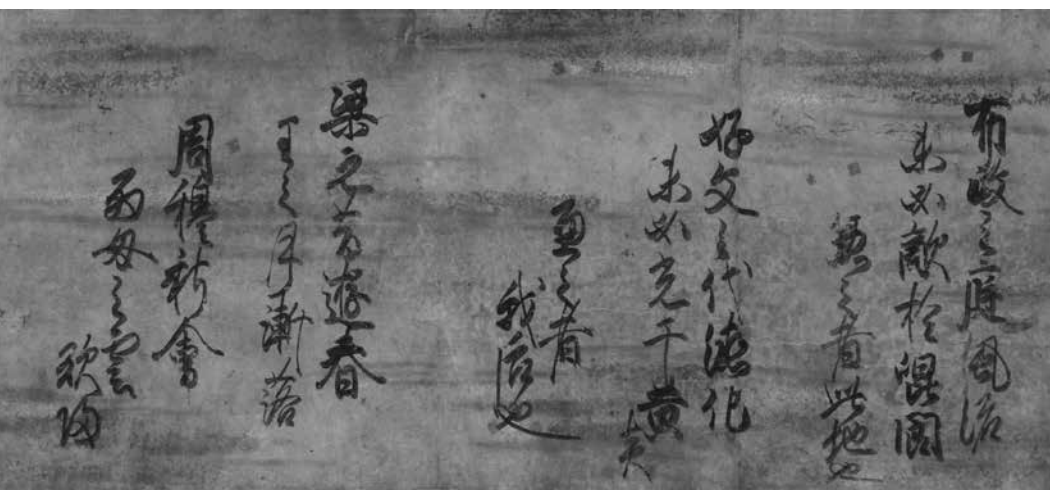 布政之庭風流
未必敵於崐閬
兼之者此地也
好文之代德化
未必光于黄炎
兼之者
我后也
梁元昔遊春
王之月漸落
周穆新會
西母之雲
欲歸